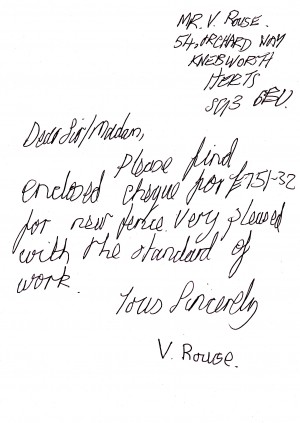 MR. V. ROUSE.
54, ORCHARD WAY
KNEBWORTH
HERTS
SG3 6EU.
Dear Sir/Madam,
Please find
enclosed cheque for £751-32
for new fence. Very pleased
with the standard of
work.
Yous Sincerely
V. Rouse.